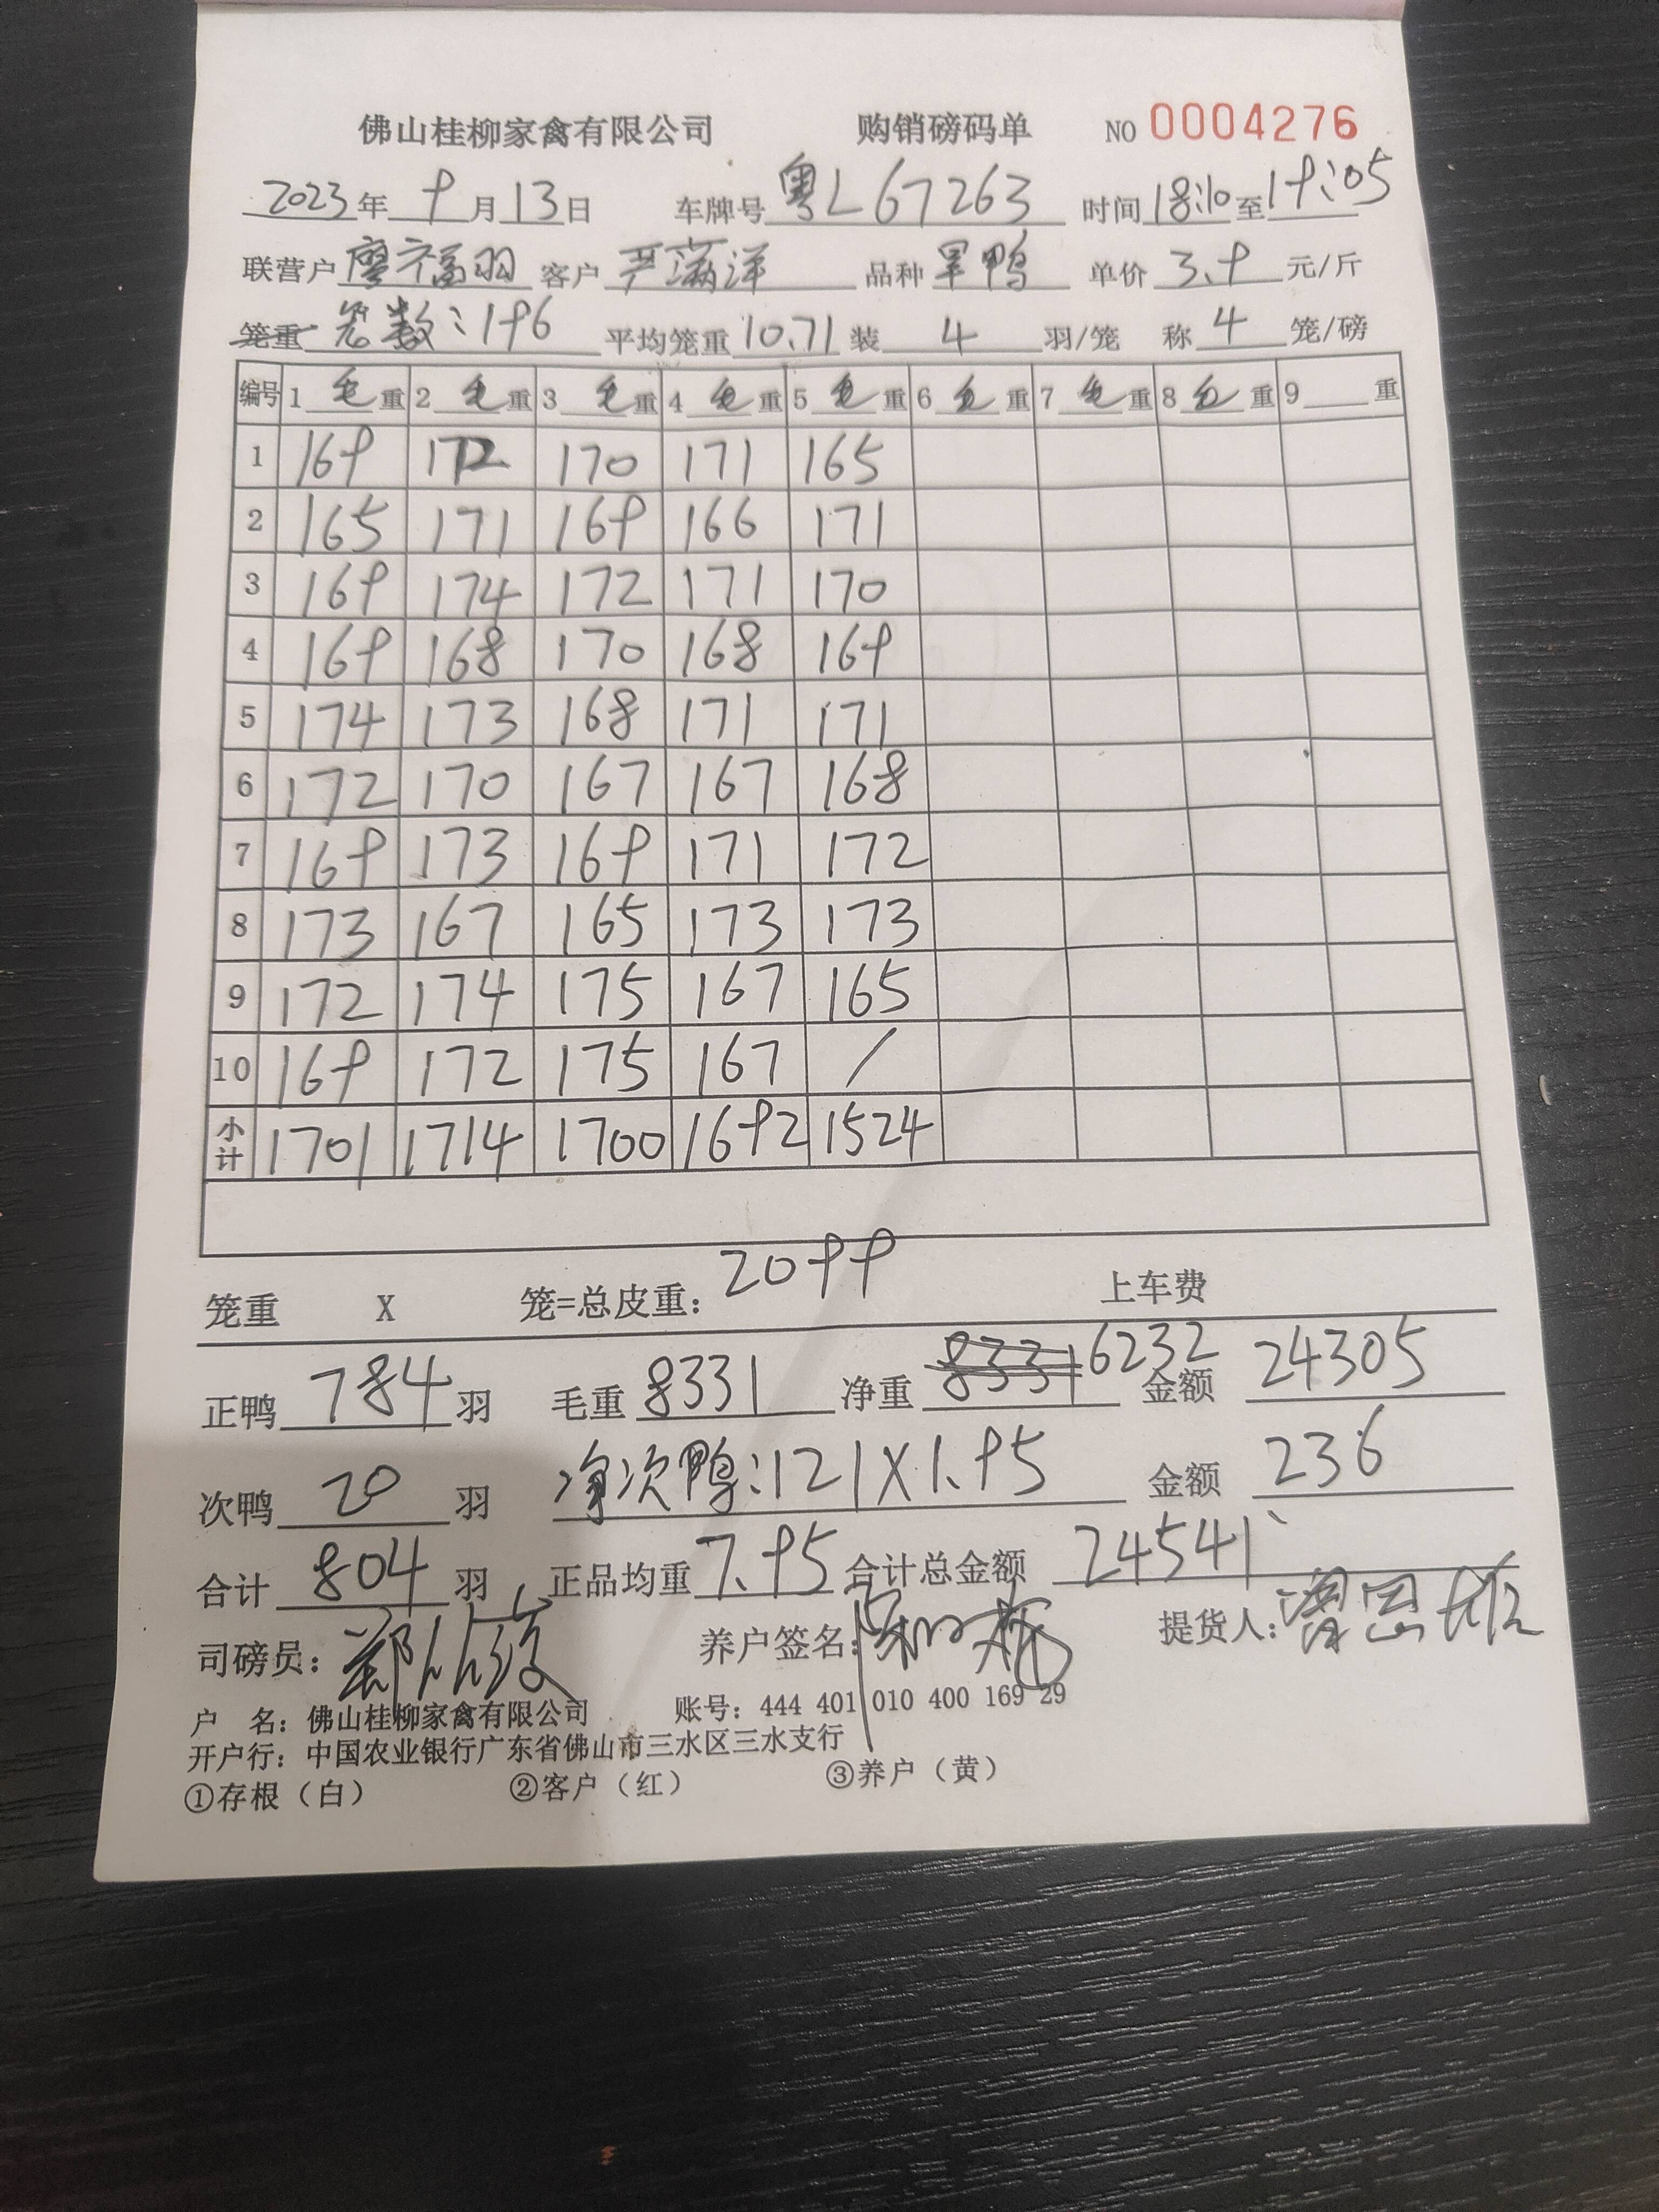 佛山桂柳家禽有限公司 购销磅码单 NO 0004276
2023年 9月13日 车牌号 粤L67263 时间 18:10 至 19:05
联营户 廖福羽 客户 严满洋 品种 旱鸭 单价 3.9 元/斤
笼重 笼数:196 平均笼重 10.71 装 4 羽/笼 称 4 笼/磅
编号 1 毛重 2 毛重 3 毛重 4 毛重 5 毛重 6 毛重 7 毛重 8 毛重 9 重
1 169 172 170 171 165
2 165 171 169 166 171
3 169 174 172 171 170
4 169 168 170 168 169
5 174 173 168 171 171
6 172 170 167 167 168
7 169 173 169 171 172
8 173 167 165 173 173
9 172 174 175 167 165
10 169 172 175 167 /
小计 1701 1714 1700 1692 1524
笼重 X 笼=总皮重: 2099 上车费
正鸭 784 羽 毛重 8331 净重 8331 6232 金额 24305
次鸭 20 羽 净次鸭:121X1.95 金额 236
合计 804 羽 正品均重 7.95 合计总金额 24541
司磅员: 养户签名: 提货人:
户 名: 佛山桂柳家禽有限公司 账号: 444 401 010 400 169 29
开户行: 中国农业银行广东省佛山市三水区三水支行
①存根（白） ②客户（红） ③养户（黄）